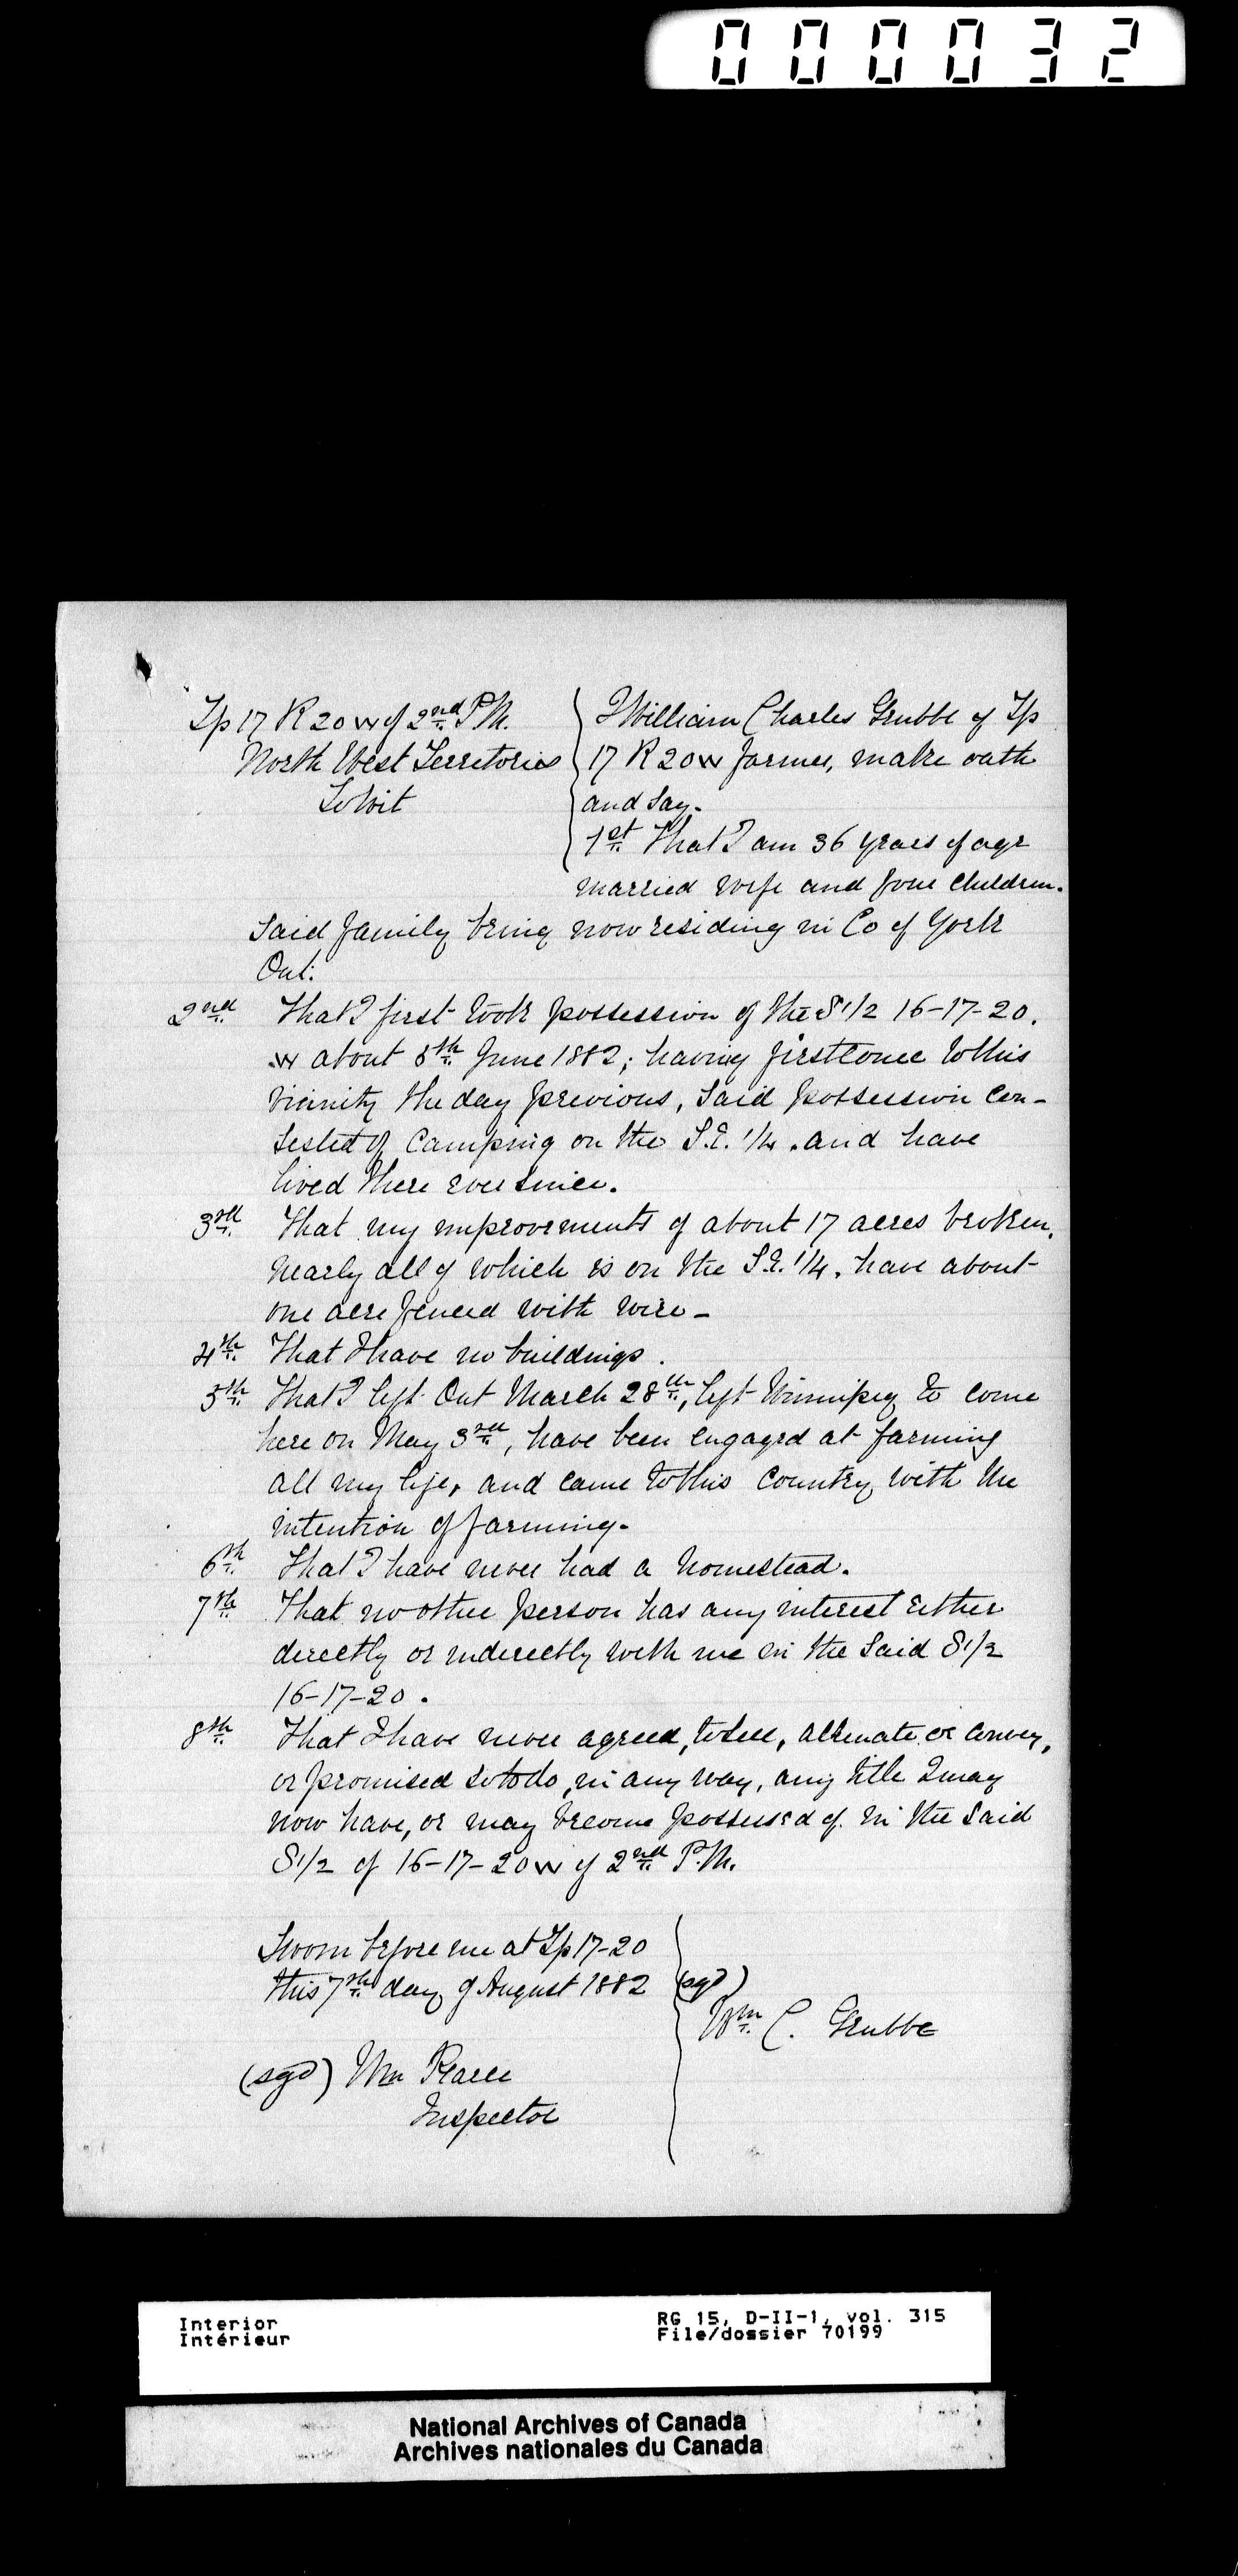 000032
Tp 17 R 20 W of 2nd P.M.
North West Territories
To Wit
I William Charles Grubbe of Tp
17 R 20 W farmer, make oath
and say.
1st That I am 36 years of age
married wife and four children.
Said family being now residing in Co of York
Ont.
2nd That I first took possession of the S 1/2 16-17-20.
W about 5th June 1882; having first come to this
vicinity the day previous, said possession con-
sisted of camping on the S.E. 1/4. and have
lived there ever since.
3rd That my improvements of about 17 acres broken,
nearly all of which is on the S.E. 1/4. have about
one acre fenced with wire -
4th That I have no buildings.
5th That I left Ont March 28th, left Winnipeg to come
here on May 3rd, have been engaged at farming
all my life, and came to this country with the
intention of farming.
6th That I have never had a homestead.
7th That no other person has any interest either
directly or indirectly with me in the said S 1/2
16-17-20.
8th That I have never agreed, to sell, alienate or convey,
or promised so to do, in any way, any title I may
now have, or may become possessed of in the said
S 1/2 of 16-17-20 W of 2nd P.M.
Sworn before me at Tp 17-20
this 7th day of August 1882
(sgd)
Wm C. Grubbe
(sgd) Wm Pearce
Inspector
Interior
Intérieur
RG 15, D-II-1, vol. 315
File/dossier 70199
National Archives of Canada
Archives nationales du Canada